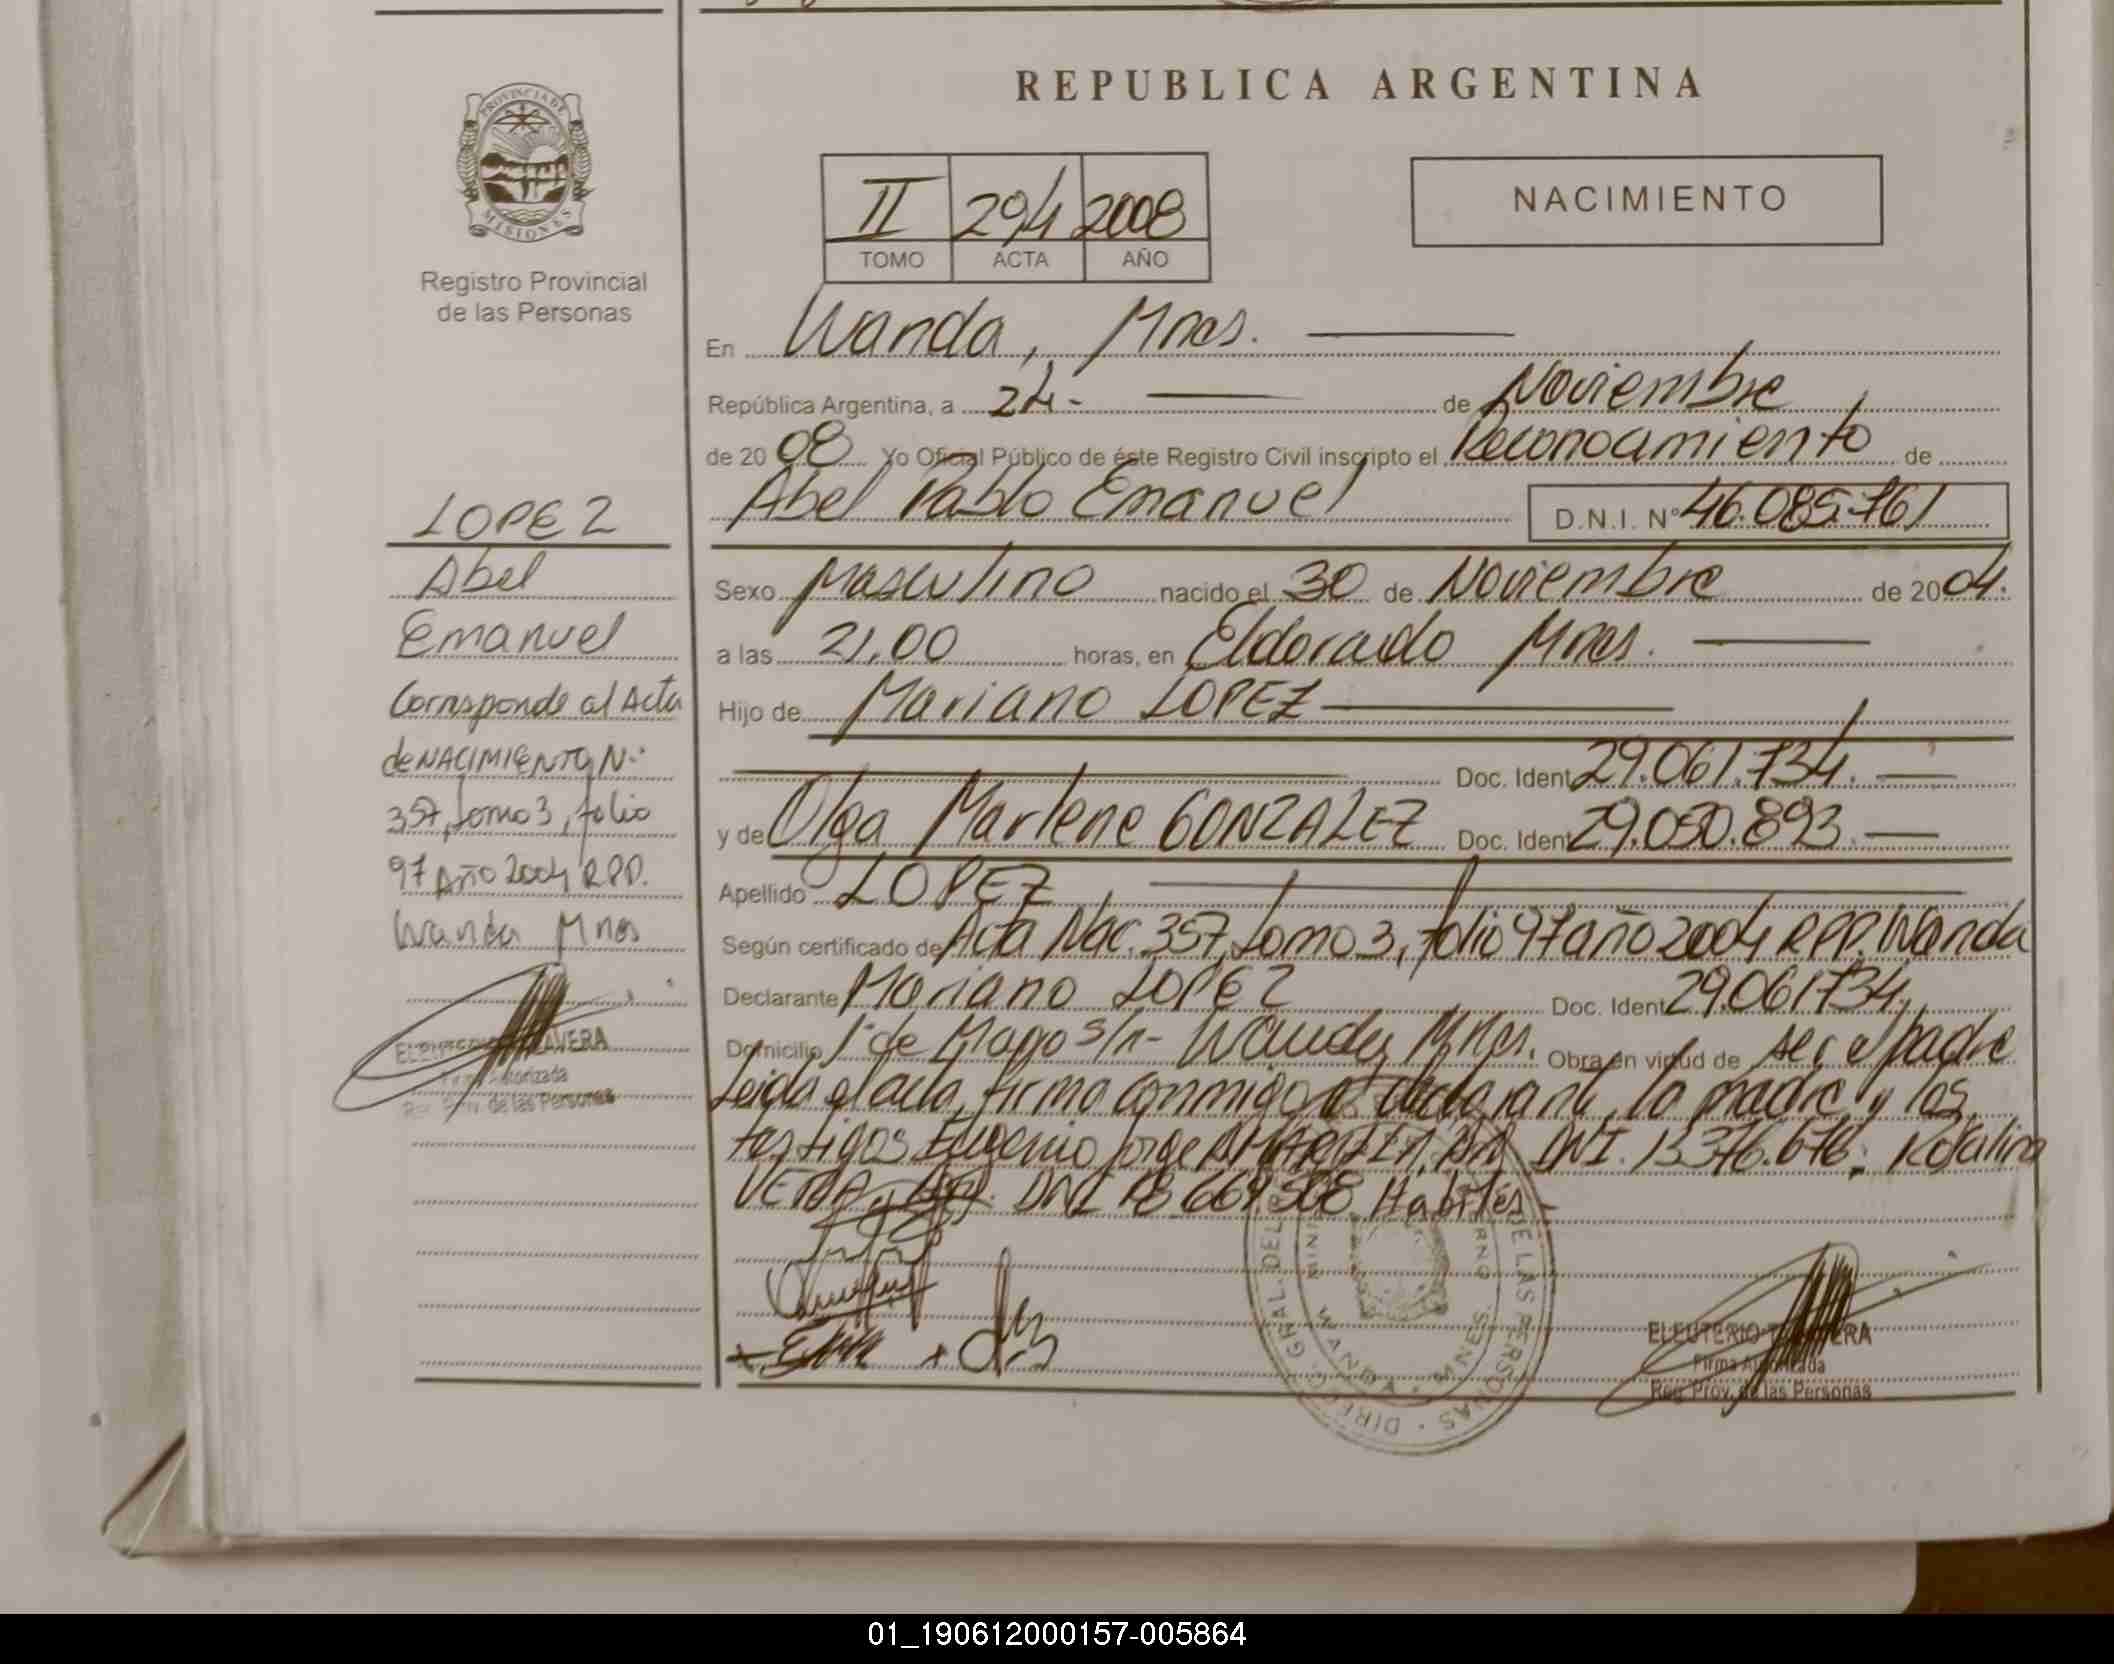 REPUBLICA ARGENTINA
PROVINCIA DE
MISIONES
Registro Provincial
de las Personas
II 294 2008
TOMO ACTA AÑO
NACIMIENTO
En Wanda, Mnes.
República Argentina, a 24.- de Noviembre
de 2008 Yo Oficial Público de éste Registro Civil inscripto el Reconocimiento de
Abel Pablo Emanuel D.N.I. Nº 46.085.761
Sexo Masculino nacido el 30 de Noviembre de 2004.
a las 21,00 horas, en Eldorado Mnes.
Hijo de Mariano LOPEZ
Doc. Ident 29.061.734.
y de Olga Marlene GONZALEZ Doc. Ident 29.050.893.
Apellido LOPEZ
Según certificado de Acta Nac. 357, tomo 3, folio 97 año 2004 RPP. Wanda
Declarante Mariano LOPEZ Doc. Ident 29.061734,
Domicilio 1º de Mayo s/n- Wanda, Mnes. Obra en virtud de ser el padre
Leida el acta, firma conmigo el declarante, la madre y los
testigos Eugenio Jorge DNI. 13.376.676, Rosalina
VERA DNI 18 669 568 Habiles-
LOPEZ
Abel
Emanuel
Corresponde al Acta
de NACIMIENTO N:
357, tomo 3, folio
97 Año 2004 RPP.
Wanda Mnes
Firma Autorizada
Reg. Prov. de las Personas
DIREC. GRAL. DEL DE LAS PERSONAS
WANDA MNES.
ELEUTERIO
Firma Autorizada
Reg. Prov. de las Personas
01_190612000157-005864